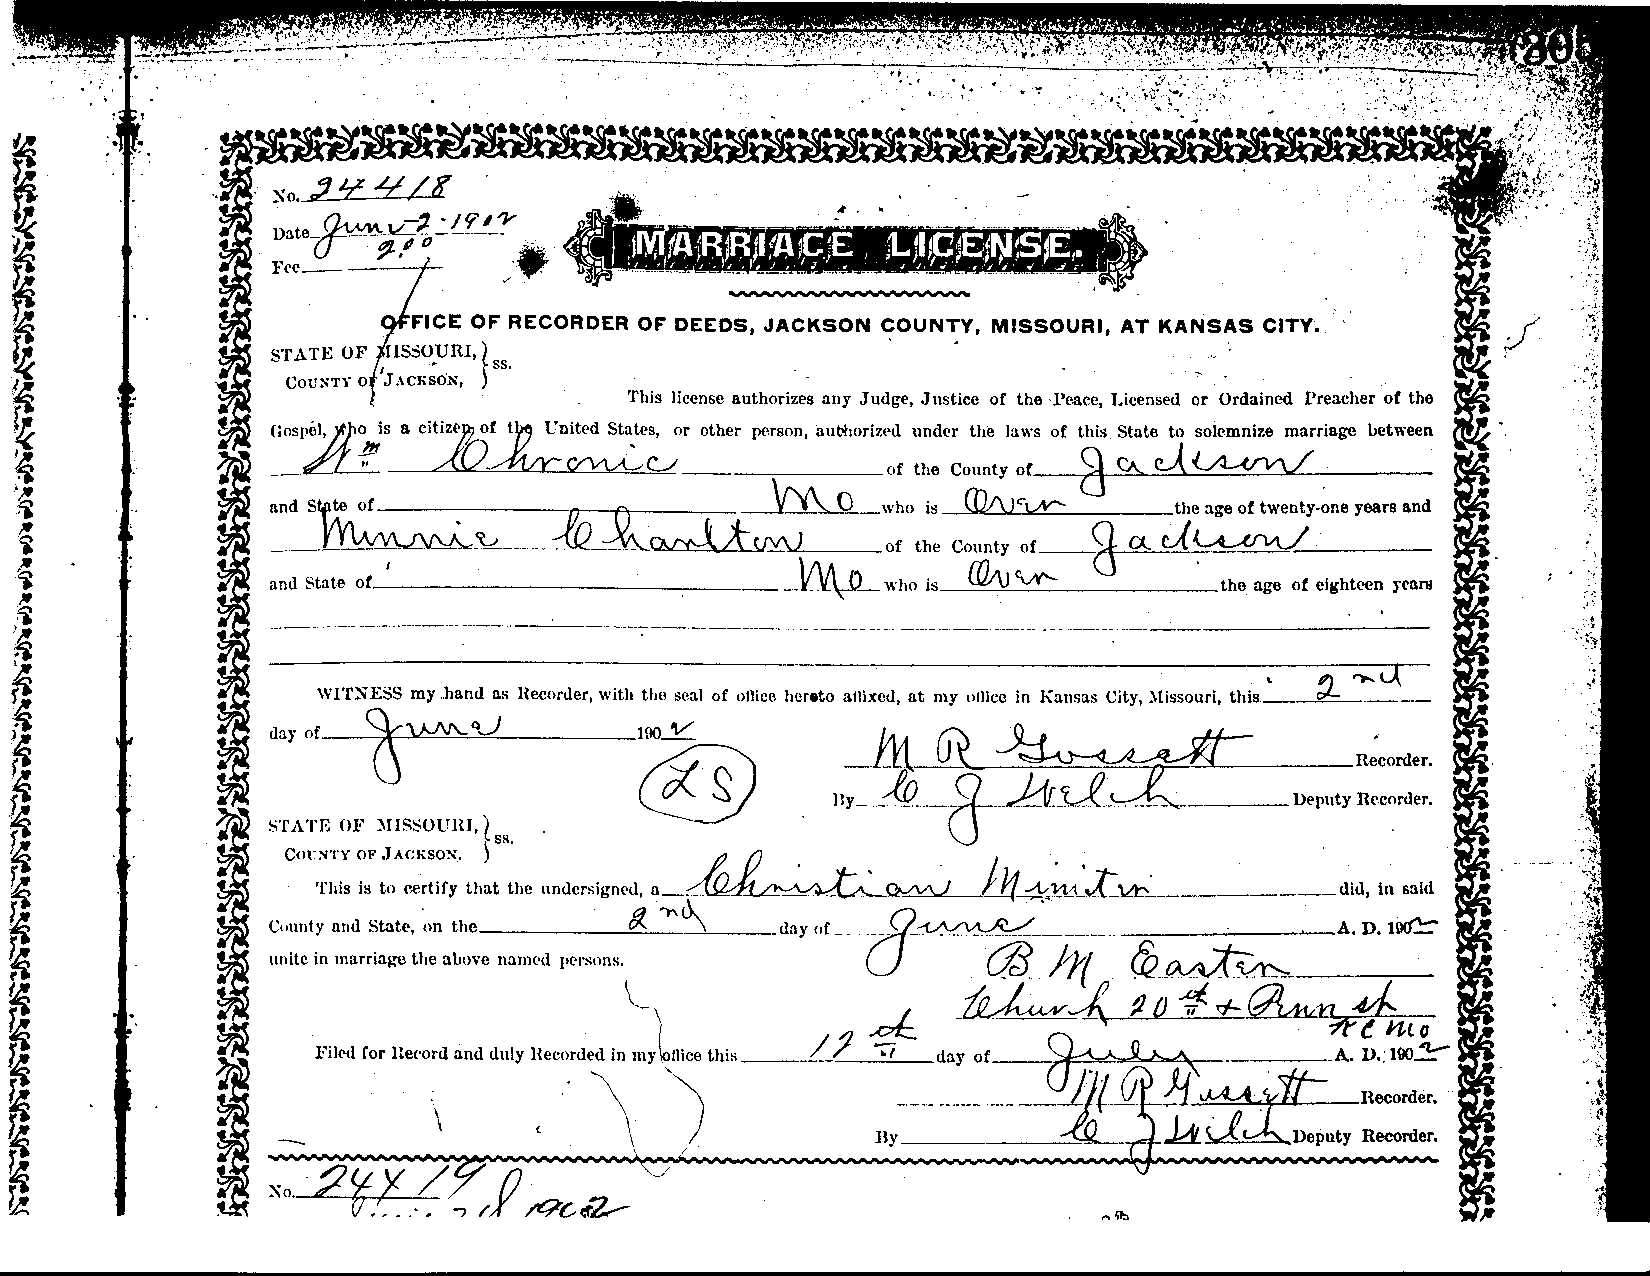 No. 24418
Date June 2 - 1902
Fee 2.00
MARRIAGE LICENSE.
OFFICE OF RECORDER OF DEEDS, JACKSON COUNTY, MISSOURI, AT KANSAS CITY.
STATE OF MISSOURI,
COUNTY OF JACKSON, } ss.
This license authorizes any Judge, Justice of the Peace, Licensed or Ordained Preacher of the
Gospel, who is a citizen of the United States, or other person, authorized under the laws of this State to solemnize marriage between
Wm Chronic of the County of Jackson
and State of Mo who is Over the age of twenty-one years and
Minnie Charlton of the County of Jackson
and State of Mo who is Over the age of eighteen years
WITNESS my hand as Recorder, with the seal of office hereto affixed, at my office in Kansas City, Missouri, this 2nd
day of June 1902
M R Gossett Recorder.
LS
By C J Welch Deputy Recorder.
STATE OF MISSOURI,
COUNTY OF JACKSON. } ss.
This is to certify that the undersigned, a Christian Minister did, in said
County and State, on the 2nd day of June A. D. 1902
unite in marriage the above named persons.
B M Easter
Church 20th + Penn st
K C Mo
Filed for Record and duly Recorded in my office this 12th day of July A. D. 1902
M R Gossett Recorder.
By C J Welch Deputy Recorder.
No. 24419
1902